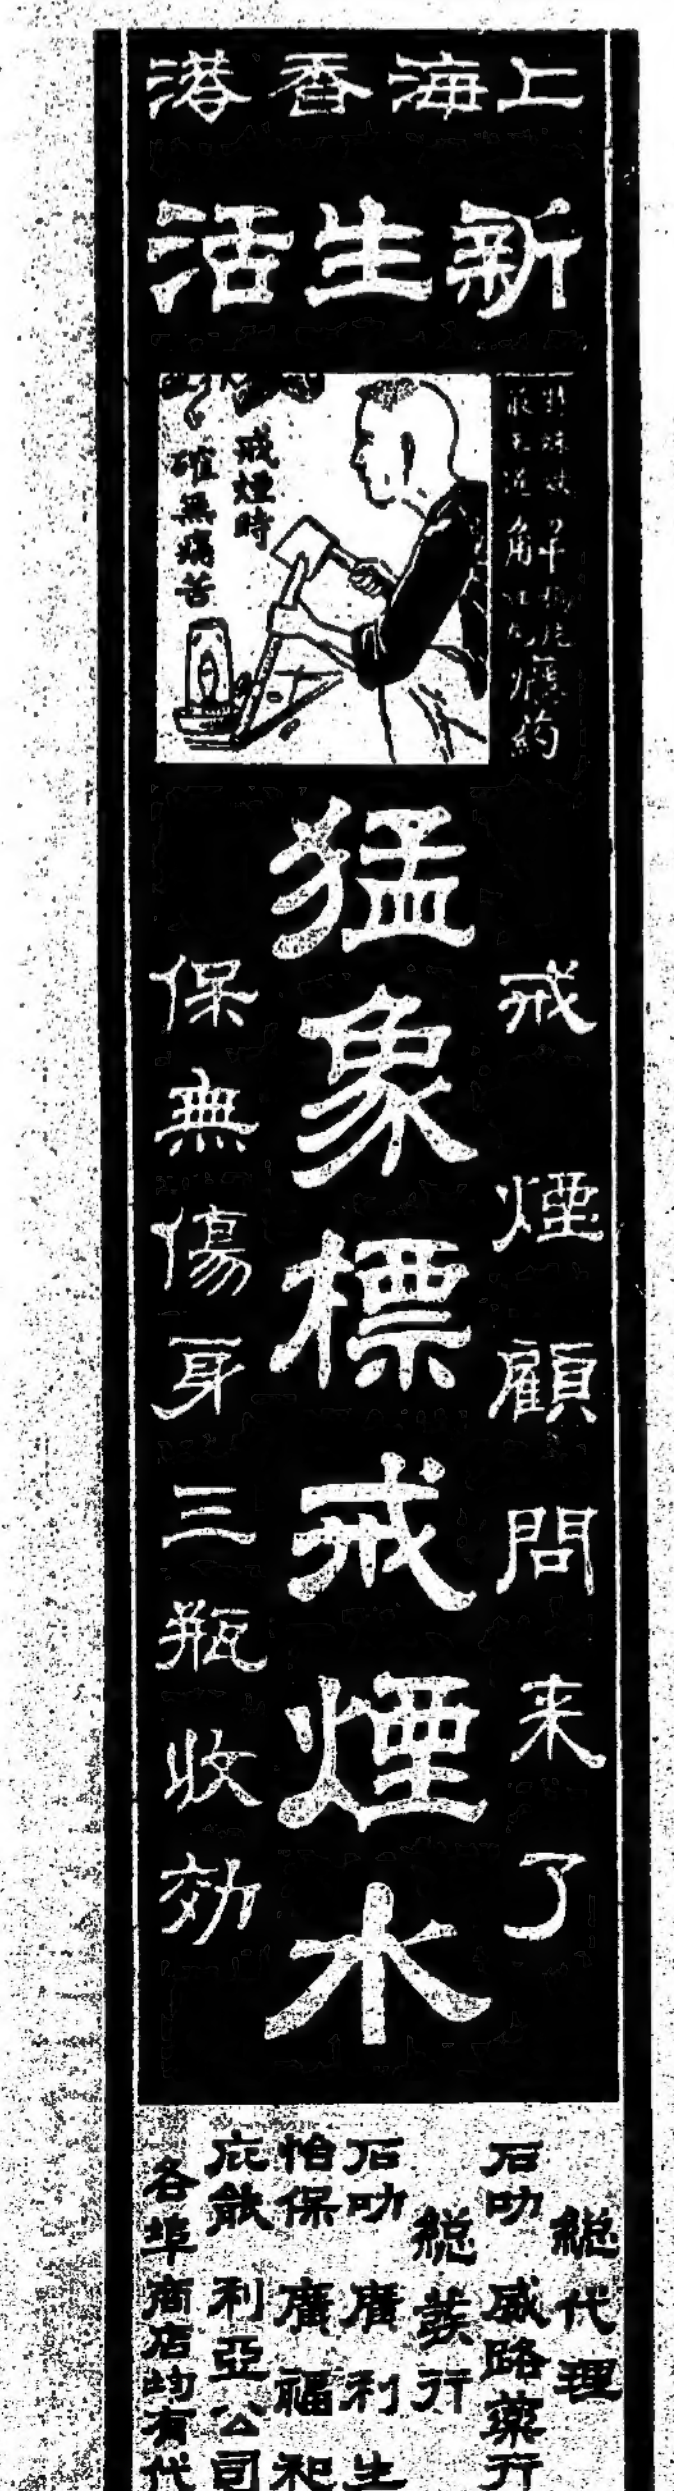 上海香港
新生活
戒煙時
確無痛苦
戒煙顧問来了
猛象標戒煙水
保無傷身三瓶收効
總代理
石叻 威路藥行
總發行
石叻 廣利生
怡保 廣福祀
庇能 利亞公司
各埠商店均有代